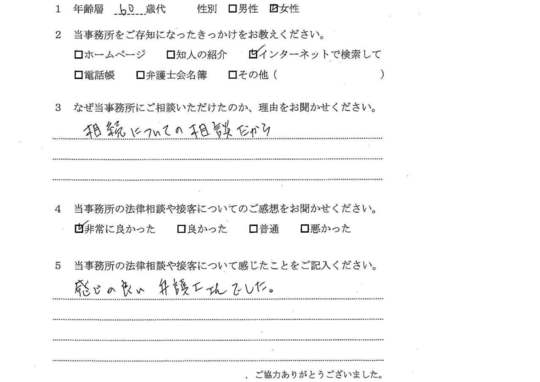 1 年齢層 60 歳代 性別 □男性 ☑女性
2 当事務所をご存知になったきっかけをお教えください。
□ホームページ □知人の紹介 ☑インターネットで検索して
□電話帳 □弁護士会名簿 □その他( )
3 なぜ当事務所にご相談いただけたのか、理由をお聞かせください。
相続についての相談だから
4 当事務所の法律相談や接客についてのご感想をお聞かせください。
☑非常に良かった □良かった □普通 □悪かった
5 当事務所の法律相談や接客について感じたことをご記入ください。
感じの良い弁護士さんでした。
、ご協力ありがとうございました。